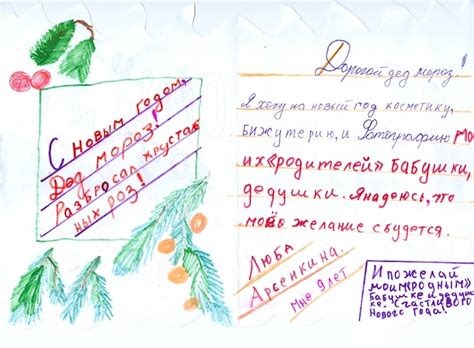 С новым годом,
Дед мороз!
Разбросал хрусталь
ных роз!
Дорогой дед мороз!
Я хочу на новый год косметику,
бижутерию, и Фотографию мо
их «родителей» бабушки,
дедушки. Я надеюсь, что
моё желание сбудется.
Люба
Арсенкина.
мне 9 лет.
И пожелай
моим «родным»
бабушке и дедуш
ке. Счастливого
Нового года!